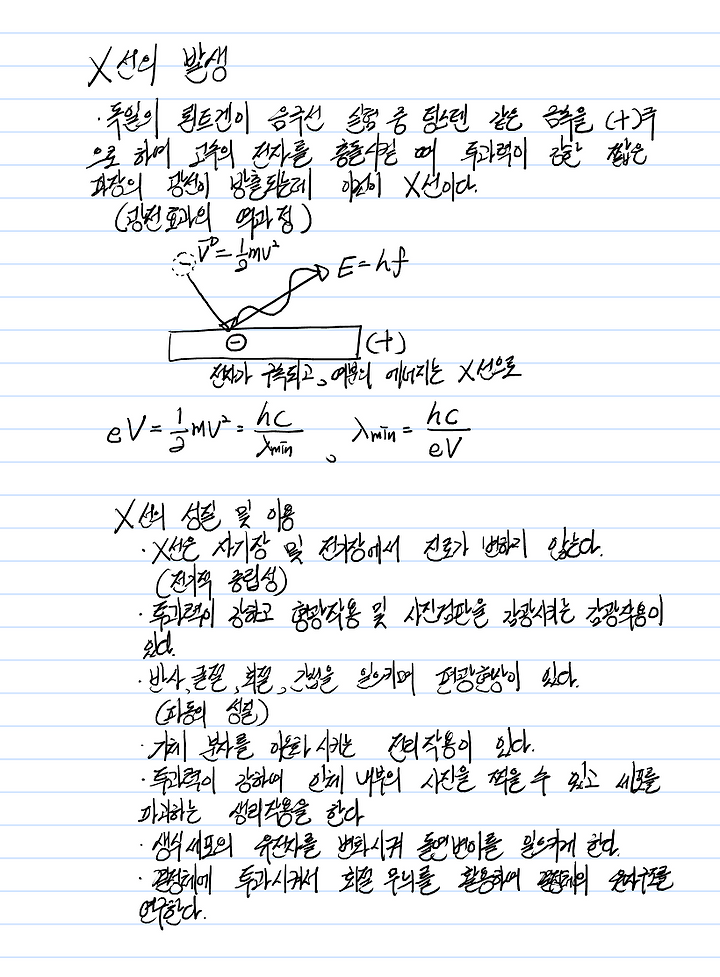 X선의 발생
· 독일의 뢴트겐이 음극선 실험 중 텅스텐 같은 금속을 (+)극
으로 하며 고속의 전자를 충돌시킬 때 투과력이 강한 짧은
파장의 광선이 방출되는데 이것이 X선이다.
(광전효과의 역과정)
V = 1/2 mv² E = hf
⊖ (+)
전자가 구속되고, 여분의 에너지는 X선으로
eV = 1/2 mv² = hc/λmin , λmin = hc/eV
X선의 성질 및 이용
· X선은 자기장 및 전기장에서 진로가 변하지 않는다.
(전기적 중립성)
· 투과력이 강하고 형광작용 및 사진건판을 감광시키는 감광작용이
있다.
· 반사, 굴절, 회절, 간섭을 일으키며 편광현상이 있다.
(파동의 성질)
· 기체 분자를 이온화 시키는 전리작용이 있다.
· 투과력이 강하여 인체 내부의 사진을 찍을 수 있고 세포를
파괴하는 생리작용을 한다
· 생식세포의 유전자를 변화시켜 돌연변이를 일으키게 한다.
· 결정체에 투과시켜서 회절 무늬를 활용하여 결정체의 원자구조를
연구한다.